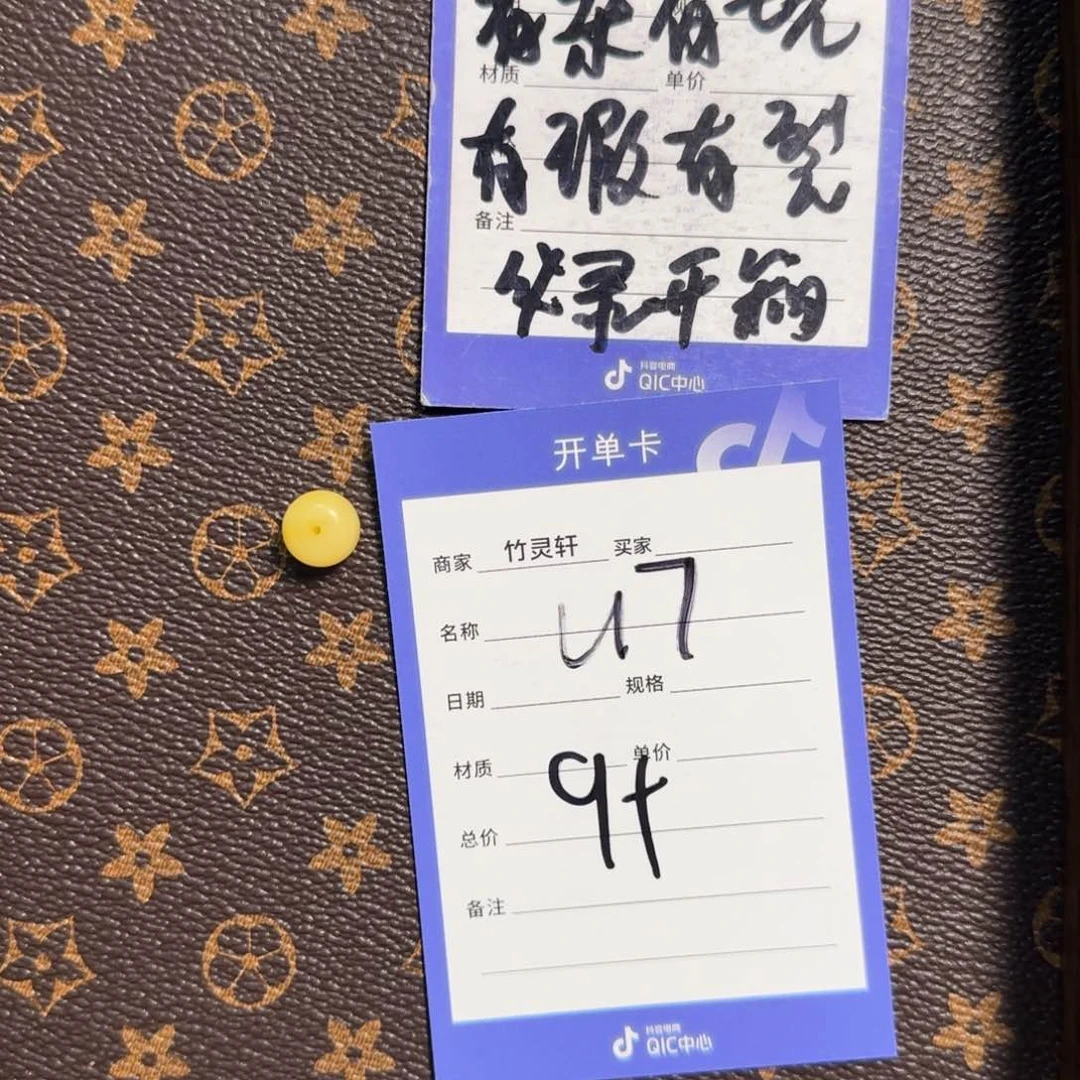 有杂有坑
材质 单价
有瑕有裂
备注
发录开箱
抖音电商
QIC中心
开单卡
商家 竹灵轩 买家
名称 U7
日期 规格
材质 单价
9t
总价
备注
抖音电商
QIC中心